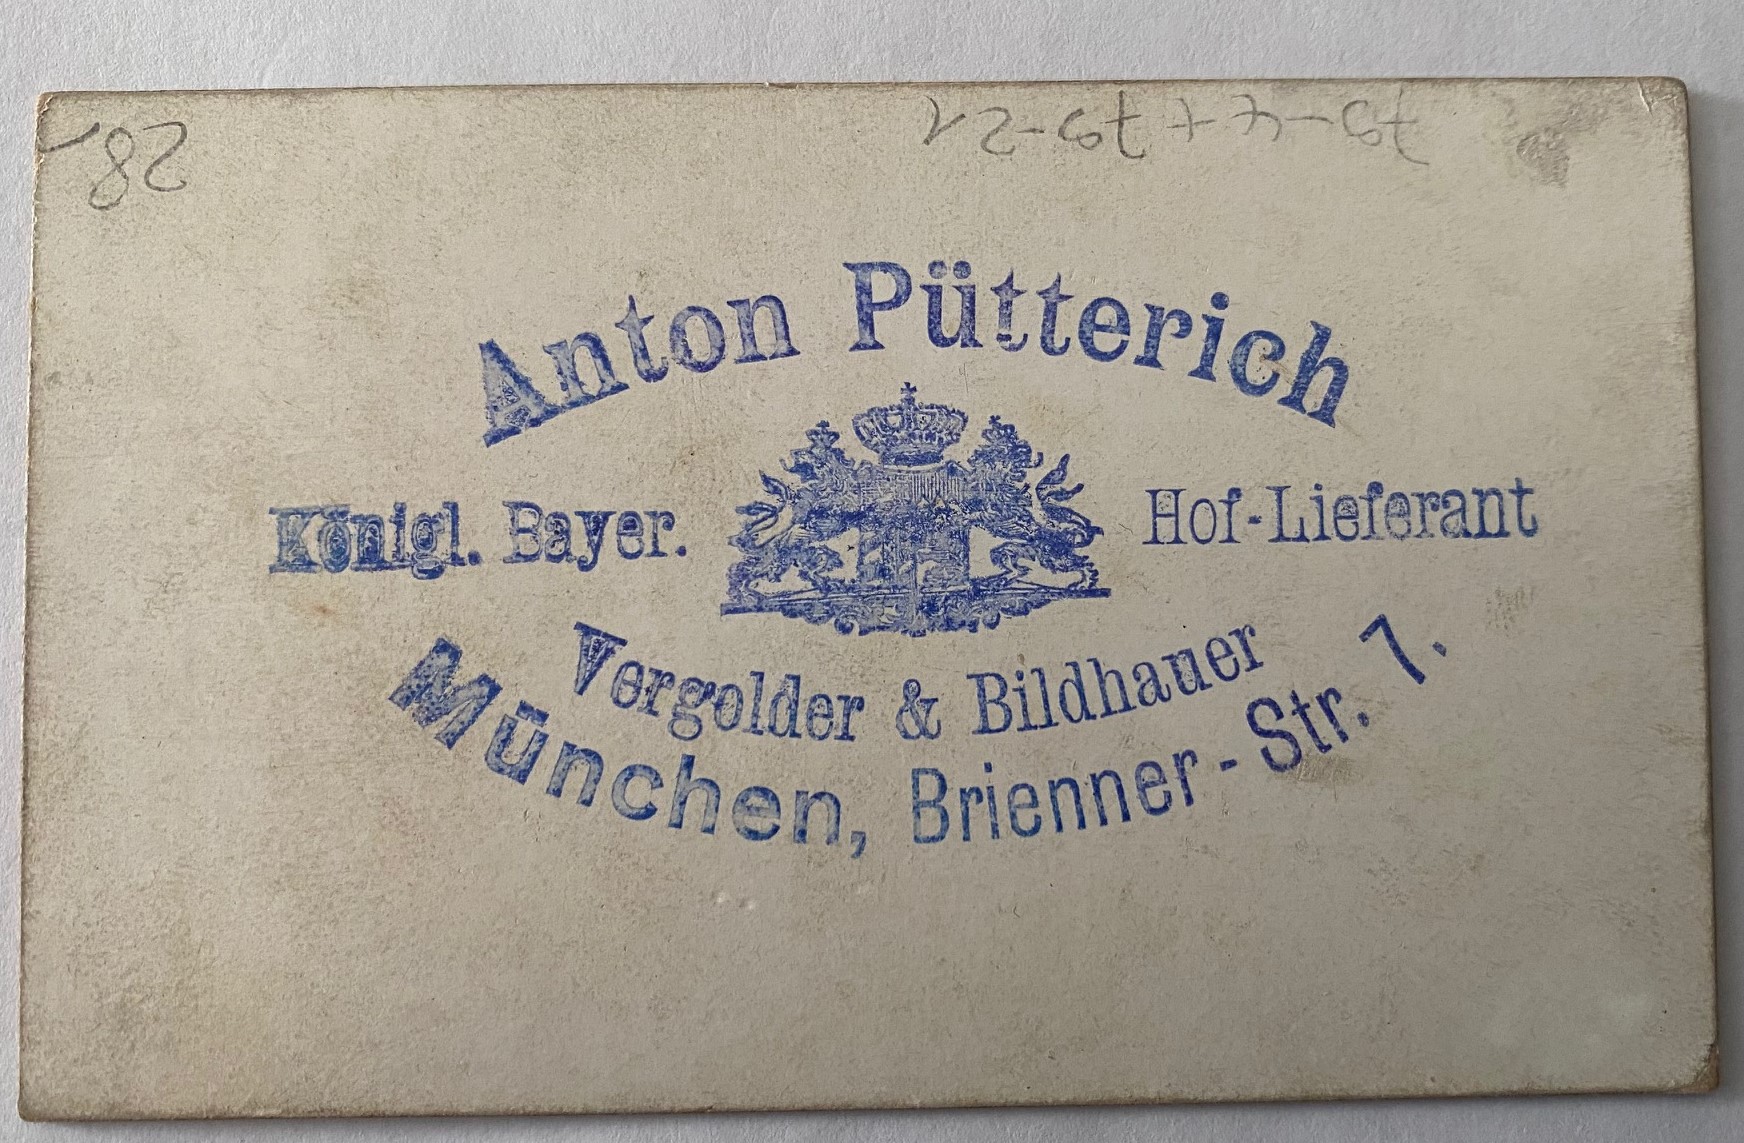 Anton Pütterich
Königl. Bayer. Hof-Lieferant
Vergolder & Bildhauer
München, Brienner-Str. 7.
28